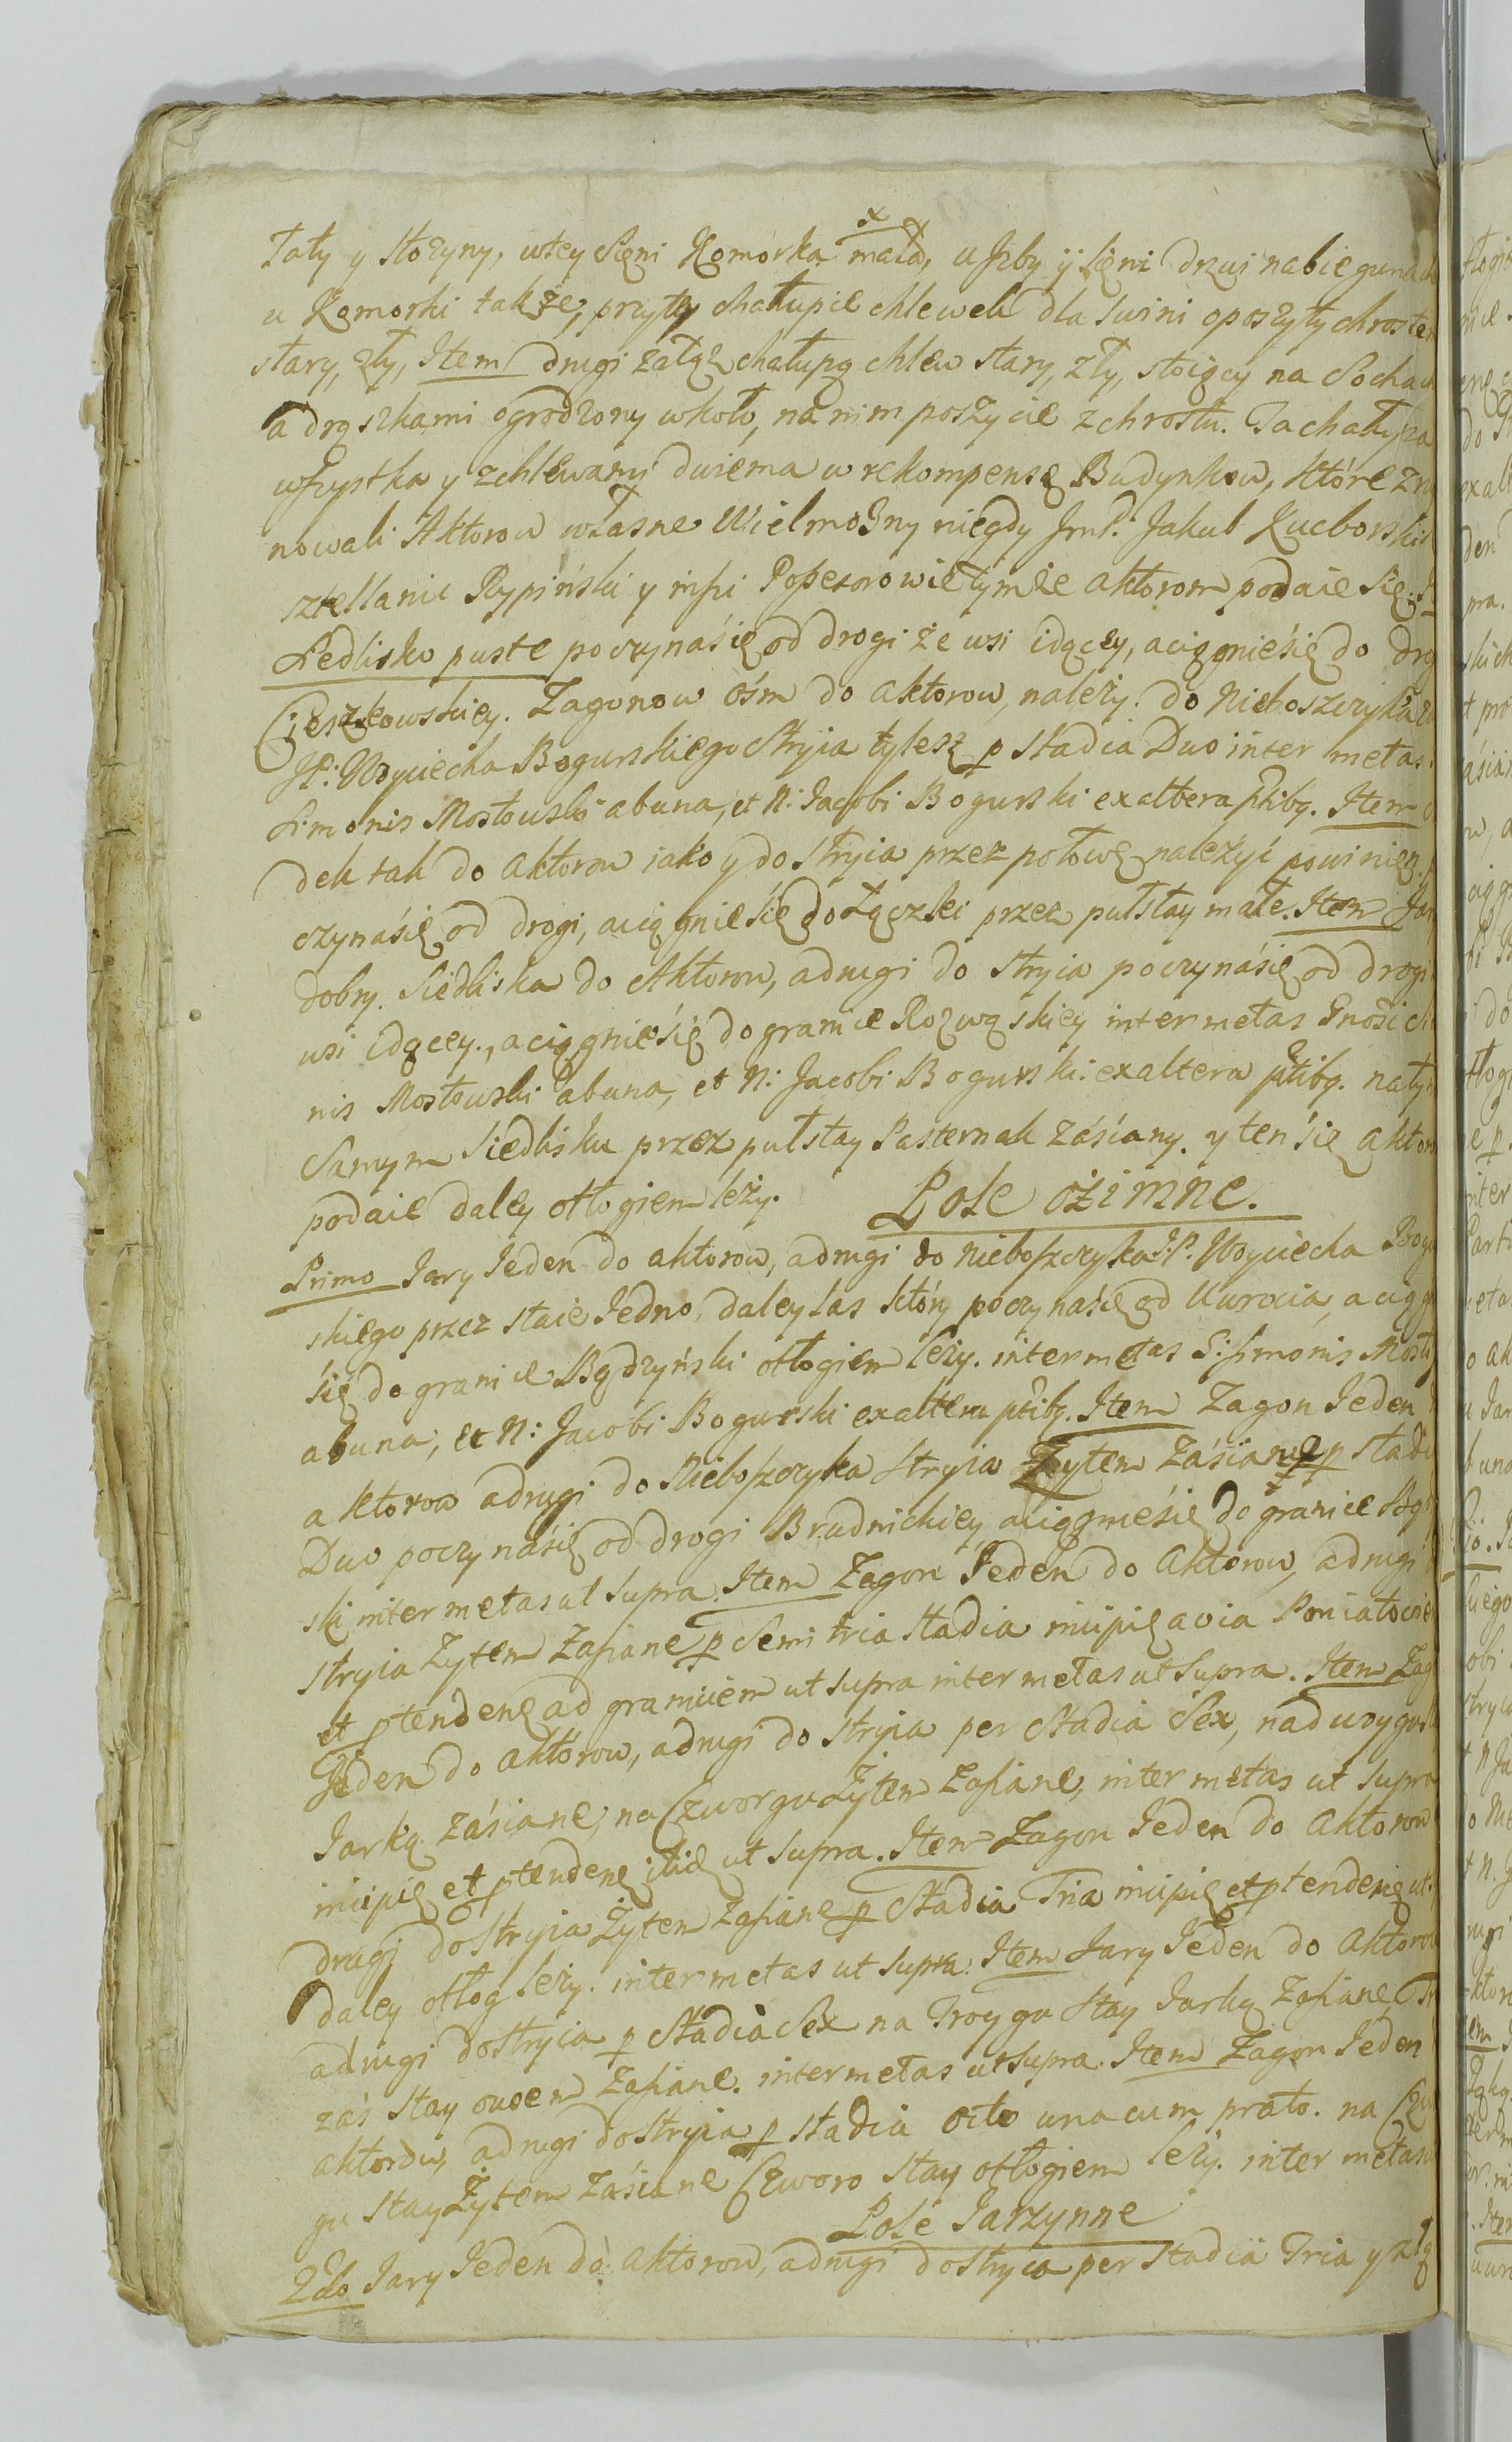 Taty y Stożyny, wtey Sieni Komorka mała, u Izby ÿ Sieni drzwi nabiegunach
u Komorki także, przytey chałupie chlewek dla swini oposzyty chrostem
stary, zły, Item drugi zatąż chałupą chlew stary, zły, stoiący na Sochach
a drążkami ogrodzony wkoło, nanim poszycie zchrostu. Ta chałupa
wszystka y zchlewami dwiema w rekompensę Budynkow, które zruy
nowali Aktorow własne Wielmożny niegdy Jmć. Jakub Kueborski
sztellanic Rypiński y inszi Possesorowie tymże aktorom podaie się.
Siedlisko puste poczynasię od drogi ze wsi idącey, aciągniesię do drogi
Cieszkowskiey. Zagonow ośm do aktorow, należy. do Nieboszczyka zaś
JP: Woyciecha Bogurskiego Stryia tylesz p Stadia Duo inter metas
Simonis Mostowski abuna, et N: Jacobi Bogurski exaltera ptibg. Item
dek tak do aktorow iako y do Stryia przez połowę należyć powinien.
czynasię od drogi, aciągniesię do Łączki przez pułstay małe. Item Jary
dobry. Siedliska do Aktorow, adrugi do Stryia poczynásię od drogi
wsi idącey, aciągniesię dogranice Rozwąskiey intermetas Gnosi
nis Mostowski abuna, et N: Jacobi Bogurski exaltera ptibg. natym
Samym Siedlisku przez pułstay Pasternak zásiany. y ten się aktorom
podaie daley otłogiem leży. Pole ożimne.
Primo Jary Jeden do aktorow, adrugi do nieboszczyka J.P. Woyciecha Bogur
skiego przez staie Jedno, daley las który poczynasię od Uwrocia, aciągnie
się do granice Bądzyński otłogiem leży. intermetas S: Simonis Mosto
abuna, et N: Jacobi Bogurski exaltera ptibg. Item Zagon Jeden
aktorow adrugi do Nieboszczyka Stryia Żytem Zásiane p stadia
Duo poczynásię od drogi Brudnickiey aciągniesię do granice Bądzyń
ski intermetas ut supra. Item Zagon Jeden do Aktorow, adrugi
Stryia Zytem Zasiane p Semi tria Stadia incipię avia Poniatowie
et ptendenę ad granicem ut supra inter metas ut Supra. Item Zagon
Jeden do aktorow, adrugi do Stryia per Stadia Sex, nad wzygor
Jarką zásiane, na Czworgu Żytem Zasiane, inter metas ut Supra
incipię et ptendenę ibię ut Supra. Item Zagon Jeden do aktorow
drugi do Stryia Żytem Zasiane p Stadia Tria incipię et ptendenę ut
daley otłog leży. intermetas ut supra. Item Jary Jeden do aktorow
adrugi do Stryia p Stadia Sex na Troygu Stay Jarką Zasiane, Tr
zás Stay owsem Zasiane. intermetas ut Supra. Item Zagon Jeden
aktorow, adrugi do Stryia p stadia octo unacum prato. na Czwor
gu Stay Żytem zásiane Czworo Stay otłogiem leży. inter metas
Pole Jarzynne
2do Jary Jeden do aktorow, adrugi do Stryia per Stadia Tria y